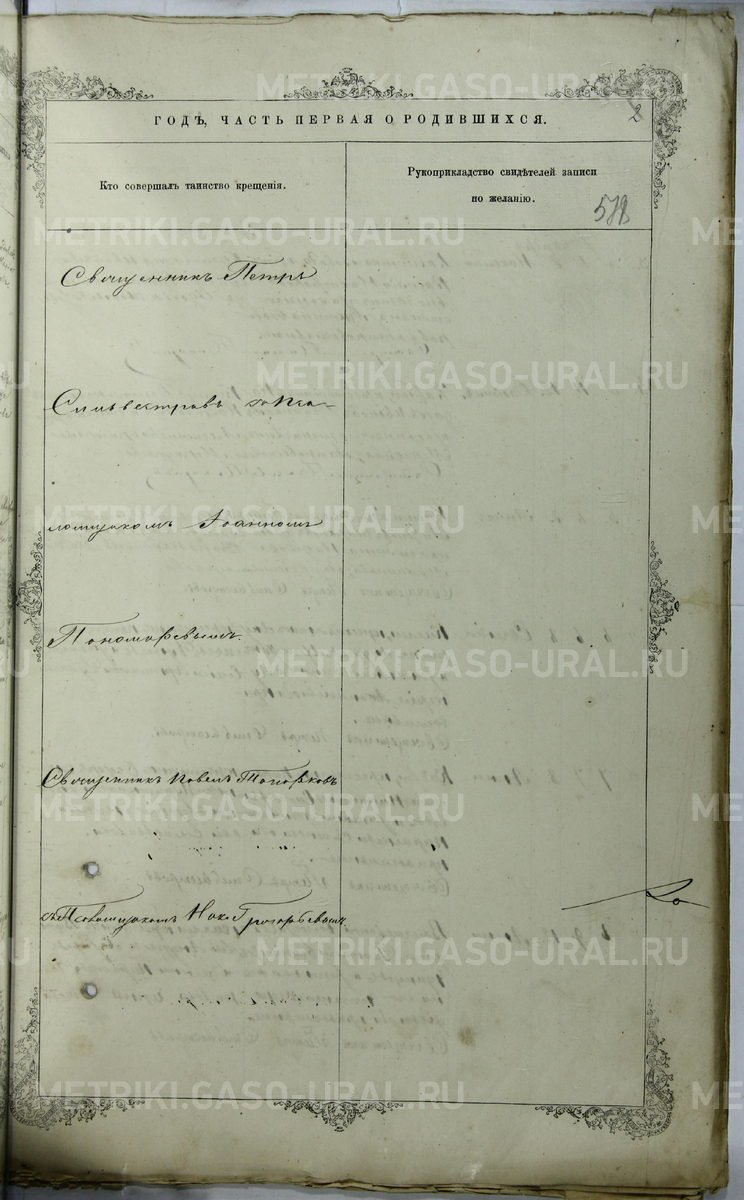 2
ГОДЪ, ЧАСТЬ ПЕРВАЯ О РОДИВШИХСЯ.
Кто совершалъ таинство крещенія.
Рукоприкладство свидѣтелей записи
по желанію.
578
Священникъ Петръ
Сильвестровъ съ Пса-
ломщикомъ Іоанномъ
Пономаревымъ.
Священникъ Павелъ Топорковъ
съ Псаломщикомъ Григорьевымъ.
METRIKI.GASO-URAL.RU